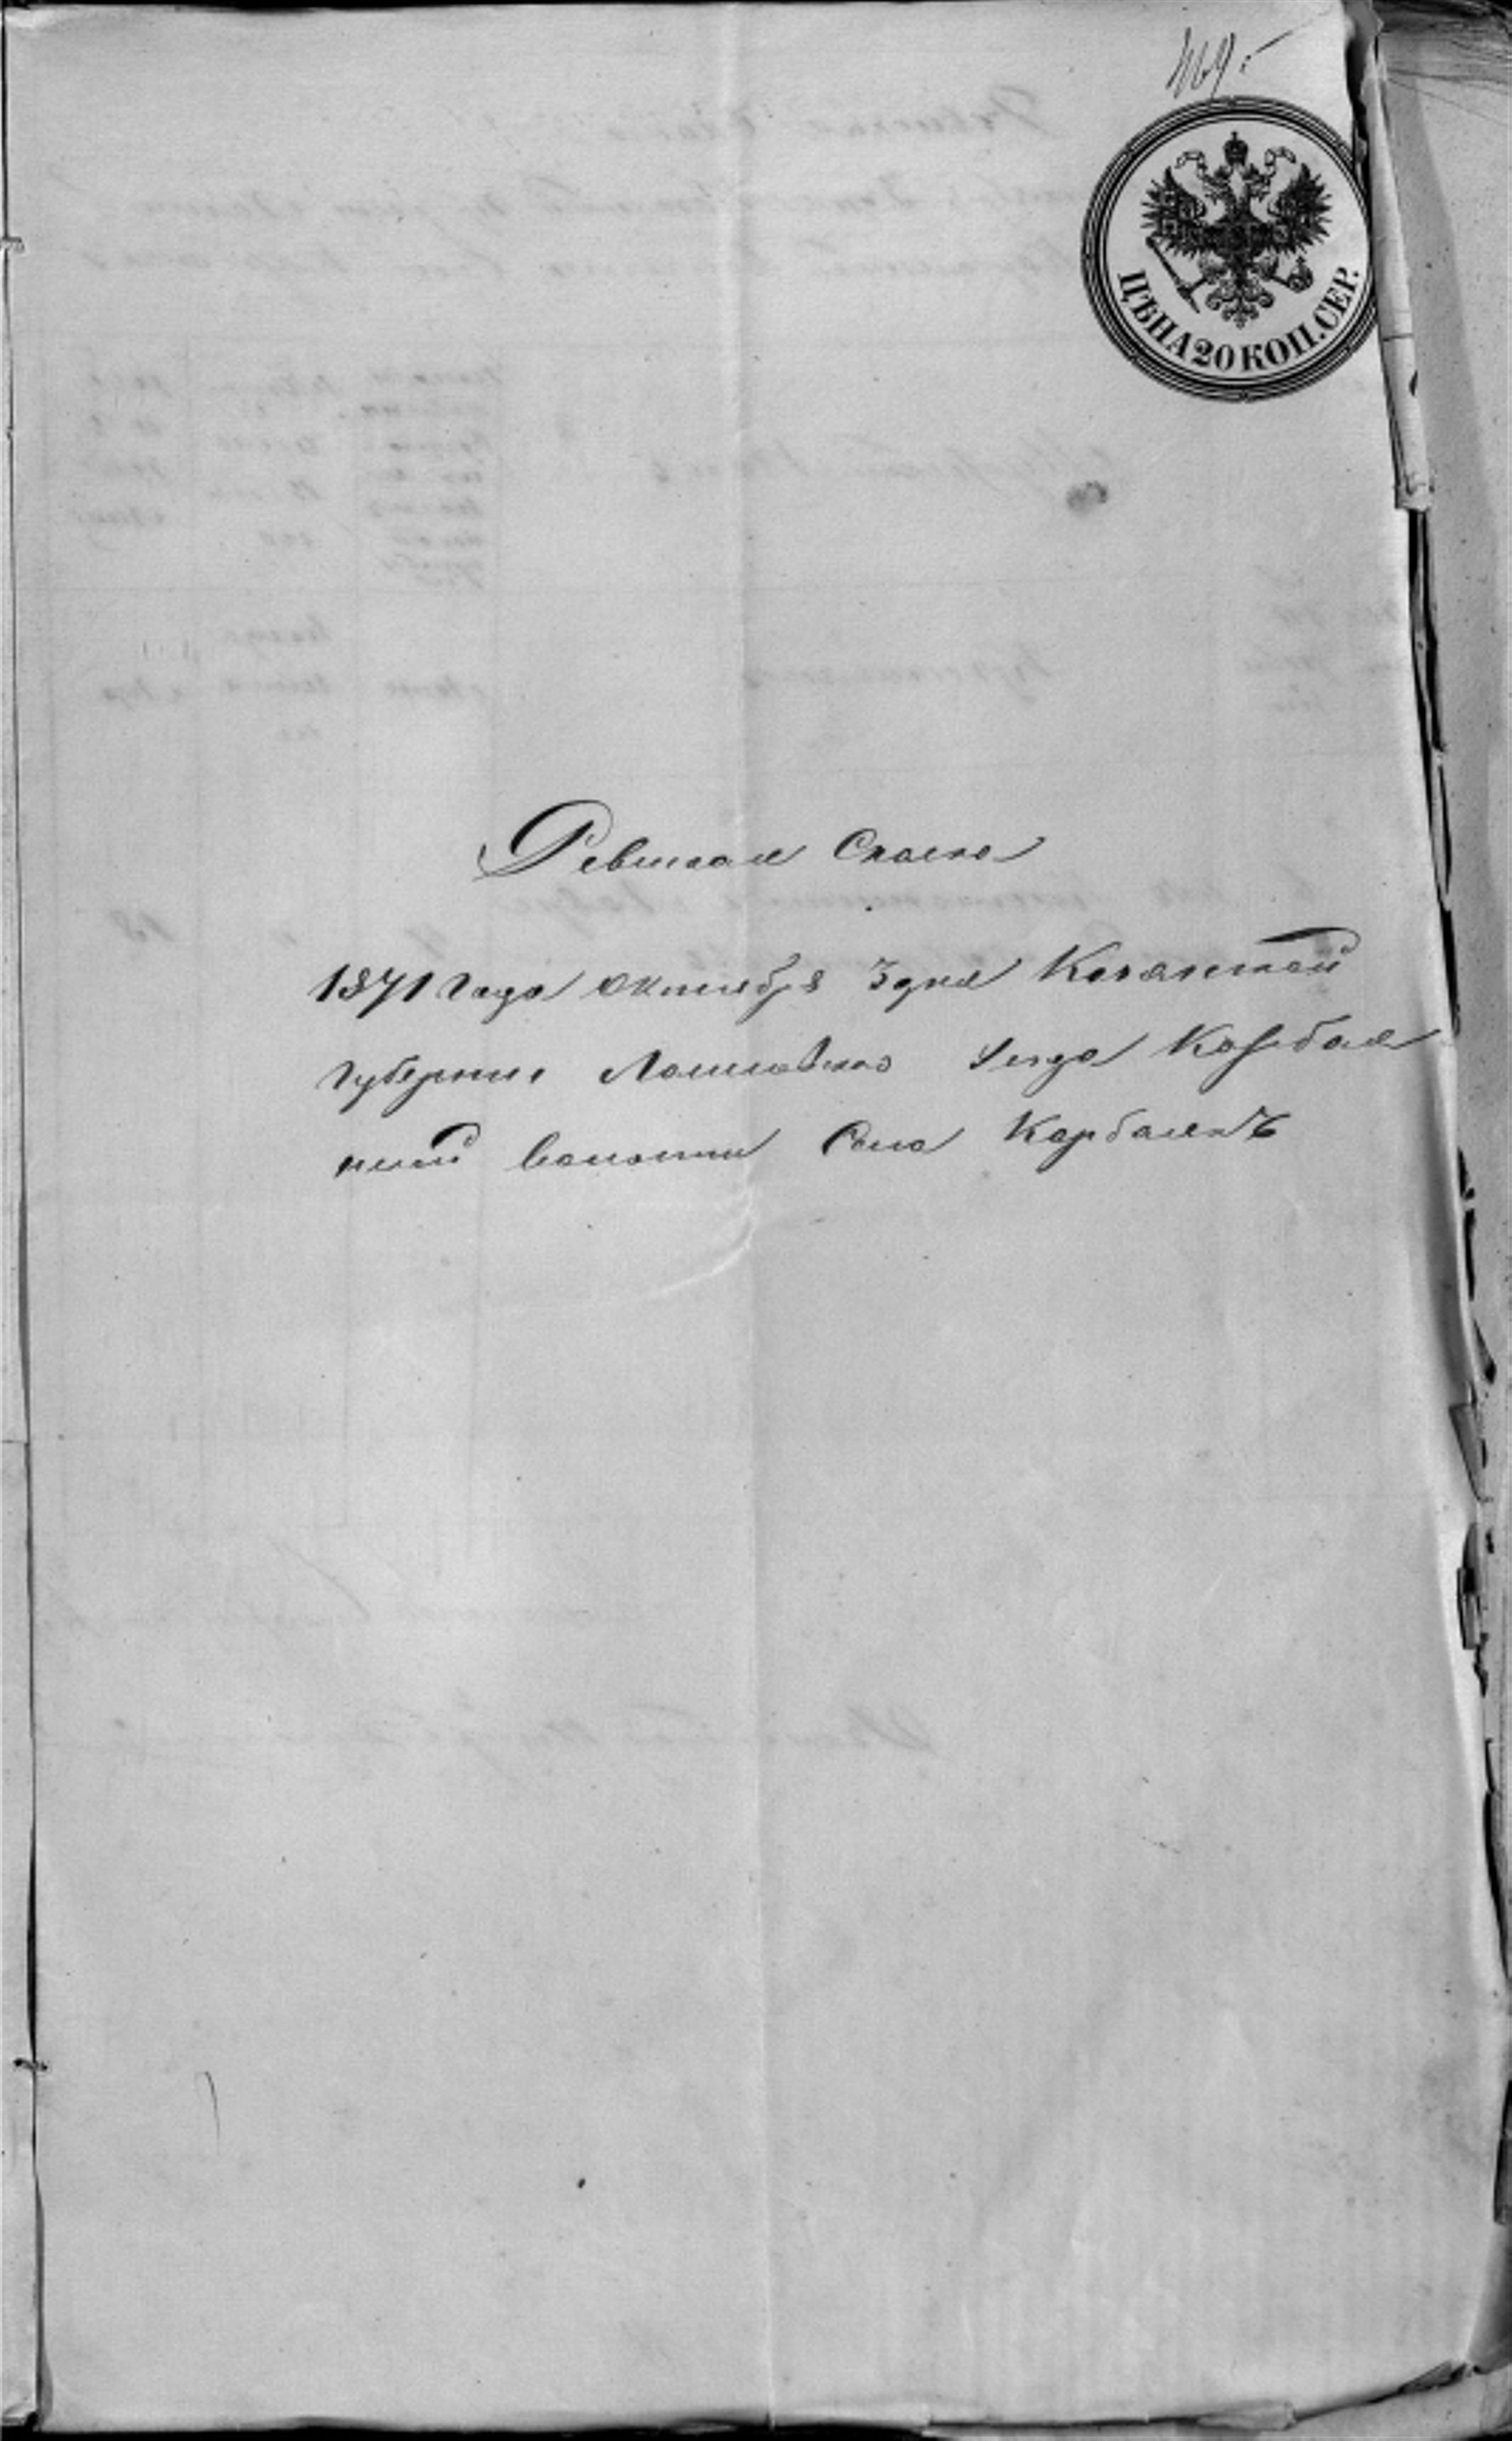 469.
ЦѢНА 20 КОП. СЕР.
Ревизская Сказка
1871 Года Октября 3 дня Казанской
Губернии Лаишевскаго Уезда Корбаян
ской волости Села Карбаянъ